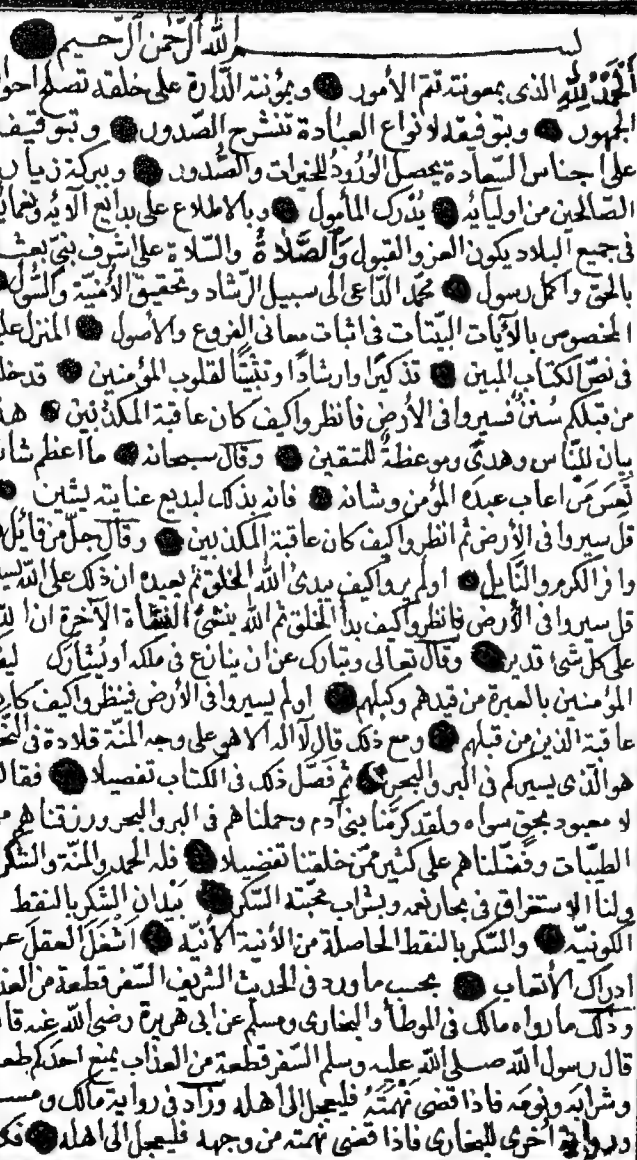 بسم الله الرحمن الرحيم
الحمد لله الذى بمعونته تتم الأمور وبمؤنته الدارة على خلقه تصلح احوا
الجمهور وبتوفيقه لانواع العبادة تنشرح الصدور وبتوقيفه
على اجناس السعادة يحصل الورود للخيرات والصدور وببركة زيار
الصالحين من اوليائه يدرك المأمول وبالاطلاع على بدايع آلائه ونعمائه
فى جميع البلاد يكون العز والقبول والصلاة والسلاة على اشرف نبى بعث
بالحق واكمل رسول محمد الداعى الى سبيل الرشاد وتحقيق الأمنية والسول
المخصوص بالأيات البينات فى اثبات معانى الفروع والأصول المنزل عليه
فى نص الكتاب المبين تذكيرا وارشادا وتثبيتا لقلوب المؤمنين قد خلت
من قبلكم سنن فسيروا فى الأرض فانظروا كيف كان عاقبة المكذبين هذا
بيان للناس وهدى وموعظة للمتقين وقال سبحانه ما اعظم شانه
تعس من اعاب عبده المؤمن وشانه فانه بذلك لبديع عنايته يشين
قل سيروا فى الأرض ثم انظروا كيف كان عاقبة المكذبين وقال جل من قايل
وافر الكرم والنايل اولم يروا كيف يبدئ الله الخلق ثم يعيده ان ذلك على الله يسير
قل سيروا فى الأرض فانظروا كيف بدأ الخلق ثم الله ينشئ النشأة الآخرة ان الله
على كل شئ قدير وقال تعالى وتبارك عن ان ينازع فى ملكه او يشارك
المؤمنين بالعبرة من قيدهم وكبلهم اولم يسيروا فى الأرض فينظروا كيف كان
عاقبة الذين من قبلهم ومع ذلك قال لا اله الا هو على وجه المنة قلادة فى
هو الذى يسيركم فى البر والبحر ثم فصل ذلك فى الكتاب تفصيلا فقال
لا معبود بحق سواه ولقد كرمنا بنى آدم وحملناهم فى البر والبحر ورزقناهم من
الطيبات وفضلناهم على كثير ممن خلقنا تفضيلا فله الحمد والمنة والشكر
ولنا الاستغراق فى بحار نعمه وبشراب محبته السكر بيد ان الشكر بالنقط
الكونية والسكر بالنقط الحاصلة من الأنية الأنية اشغل العقل عن
ادراك الأتعاب بحسب ما ورد فى الحديث الشريف السفر قطعة من العذاب
وذلك ما رواه مالك فى الموطأ والبخارى ومسلم عن ابى هريرة رضى الله عنه قال
قال رسول الله صلى الله عليه وسلم السفر قطعة من العذاب يمنع احدكم طعامه
وشرابه ونومه فاذا قضى نهمته فليعجل الى اهله وزاد فى رواية مالك ومسلم
ورواية أخرى للبخارى فاذا قضى نهمته من وجهه فليعجل الى اهله